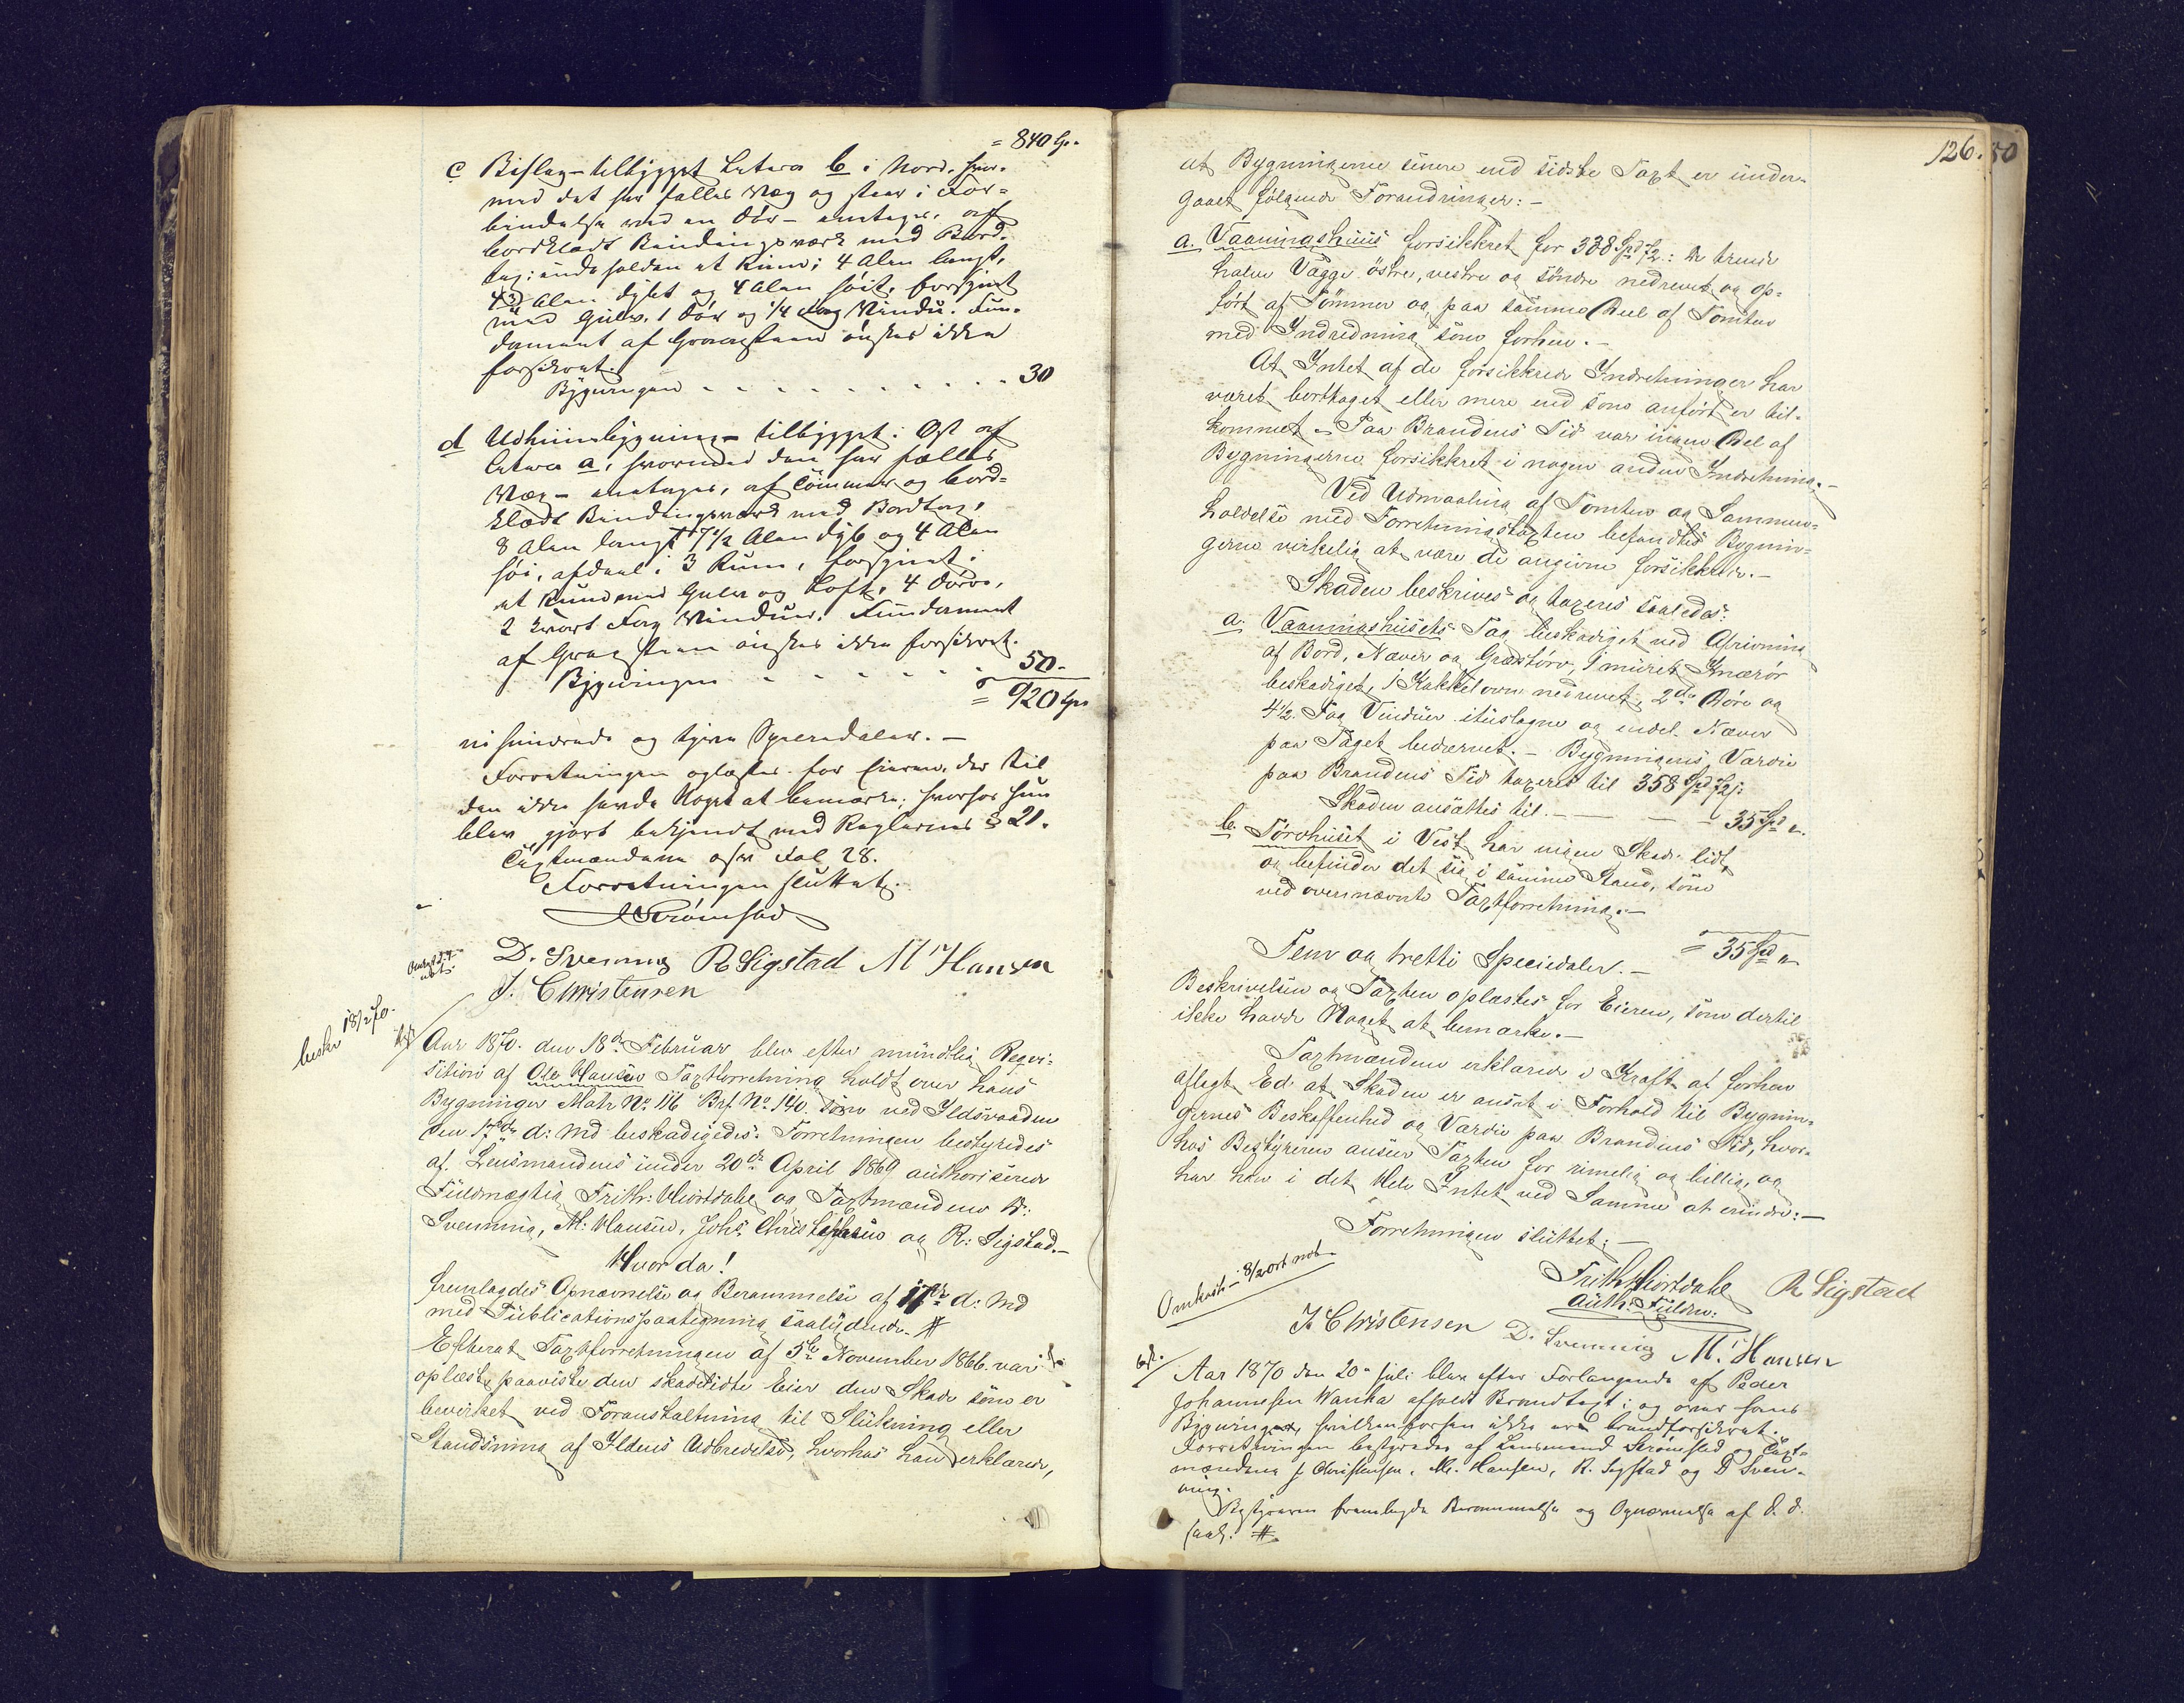 = 840 Sp.
c Bislag – tilbygget Litera b i Nord, hvor-
med det har fælles Væg og staar i For-
bindelse ved en Dör – antages, af
bordklædt Bindingsværk med Bord-
tag; indeholder et Rum; 4 Alen langt,
4 Alen dybt og 4 Alen höit, forsynet
med Gulv, 1 Dör og 1/4 Fag Vindu. Fun-
dament af Graasteen önskes ikke
forsikret.
Bygningen - - - - - - - - - - 30
d Udhuusbygning – tilbygget i Öst af
Litera a, hvormed den har fælles
Væg – antages, af Tömmer og bord-
klædt Bindingsværk med Bordtag,
8 Alen langt 7 1/2 Alen dyb og 4 Alen
höi, afdeelt i 3 Rum, forsynet i
et Rum med Gulv og Loft, 4 Döre,
2 Fag Vinduer. Fundament
af Graasteen önskes ikke forsikret.
Bygningen - - - - - - 50 -
= 920 Sp
ni hundrede og tyve Speciedaler. –
Forretningen oplæstes for Eieren, der til
den ikke havde Noget at bemærke; hvorhos hun
blev gjort bekjendt med Reglernes § 21.
Taxtmændene Fol 28.
Forretningen sluttet.
Strömsted
D. Svenning R Sigstad M Hansen
J. Christensen
beskr 18/2 70.
Aar 1870. den 18de Februar blev efter mündtlig Reqvi-
sition af Ole Hansen Taxtforretning holdt over hans
Bygninger Matr No. 116 Brf. No. 140. som ved Ildsvaaden
den 17de d: Md beskadigedes. Forretningen bestyredes
af Lensmandens under 20de April 1869 authoriserede
Füldmægtig Frith: Hiortdahl og Taxtmændene D:
Svenning, M: Hansen, Johs. Christensen og R: Sigstad. –
Hvorda!
fremlagdes Opnævnelse og Berammelse af 17de d: Md
med Publicationspaategning saalydende. #
Efterat Taxtforretningen af 5te November 1866. var
oplæst, paaviste den skadelidte Eier den Skade som er
bevirket ved Foranstaltning til Slükning eller
Standsning af Ildens Udbredelse, hvorhos han erklærede,
126. 50
at Bygningerne senere end sidste Taxt er under-
gaaet følgende Forandringer: –
a. Vaaningshuus forsikkret for 338 Spd: De trende
halve Vægge östre, vestre og söndre nedrevet og op-
fört af Tömmer og paa samme Deel af Tomten
med Indredning som forhen. –
At Intet af de forsikkrede Indretninger har
været borttaget eller mere end som anfört er til-
kommet – Paa Brandens Tid var ingen Deel af
Bygningerne forsikkret i nogen anden Indretning. –
Ved Udmaaling af Tomten og Sammen-
holdelse med Forretningstaxten befandtes Bygnin-
gerne virkelig at være de angivne forsikkrede. –
Skaden beskrives og taxeres saaledes:
a. Vaaningshusets Tag beskadiget ved Afrivning
af Bord, Næver og Græstörv, 1 müret Knærör
beskadiget, 1 Kakkelovn nedrevet, 2de Döre og
4 1/2 Fag Vinduer ituslagne og endel Næver
paa Taget bedærvet. – Bygningens Værdie
paa Brandens Tid taxeres til 358 Spd
Skaden ansættes til. – – – – 35 Spd
b. Törvhuset i Vest har ingen Skade lidt,
og befinder det sig i samme Stand, som
ved overnævnte Taxtforretning. –
= 35 Spd
Fem og tretti Speciedaler. –
Beskrivelsen og Taxten oplæstes for Eieren, som dertil
ikke havde Noget at bemærke. –
Taxtmændene erklærede i Kraft af forhen
aflagt Ed at Skaden er ansat i Forhold til Bygnin-
gernes Beskaffenhed og Værdie paa Brandens Tid, hvor-
hos Bestyreren ansaae Taxten for rimelig og billig, og
har han i det Hele Intet ved Samme at erindre: –
Forretningen slüttet: –
Frith Hiortdahl R Sigstad
auth: Füldm:
J. Christensen D. Svenning M. Hansen
Aar 1870 den 20 Juli blev efter Forlangende af Peder
Johannesen Wanka afholdt Brandtaxt; og over hans
Bygninger, hvilken forhen ikke er brandforsikret.
Forretningen bestyredes af Lensmand Strömsted og Taxt-
mændene J Christensen, M. Hansen, R. Sigstad og D Sven-
ning.
Bestyreren fremlagde Berammelse og Opnævnelse af d. d.
saal. #